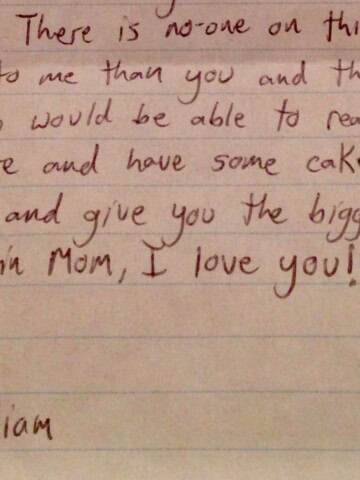 There is no-one on thi
to me than you and th
would be able to rea
e and have some cak
and give you the bigg
in Mom, I love you!
iam